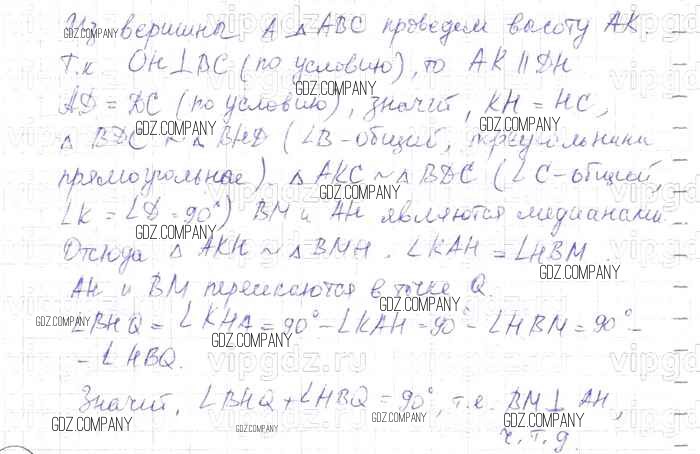 Из вершины A △ ABC проведем высоту AK.
Т.к DH⊥BC (по условию), то AK || DH
AD = DC (по условию), значит, KH = HC,
△ BDC ~ △ BHD (∠B - общий, треугольники
прямоугольные) △ AKC ~ △ BDC (∠C - общий,
∠K = ∠D = 90°) BM и AH являются медианами.
Отсюда △ AKH ~ △ BMH. ∠KAH = ∠HBM.
AH и BM пересекаются в точке Q.
∠BHQ = ∠KHA = 90° - ∠KAH = 90° - ∠HBM = 90° -
- ∠HBQ.
Значит, ∠BHQ + ∠HBQ = 90°, т.е. BM ⊥ AH,
ч.т.д.